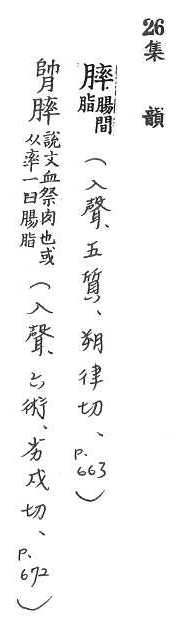 26 集韻
膟腸間脂（入聲、五質、朔律切、p.663）
膟說文血祭肉也或从率一曰腸脂（入聲、六術、劣戌切、p.672）